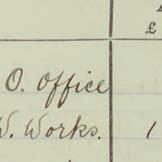 £
O. Office
W. Works. 1